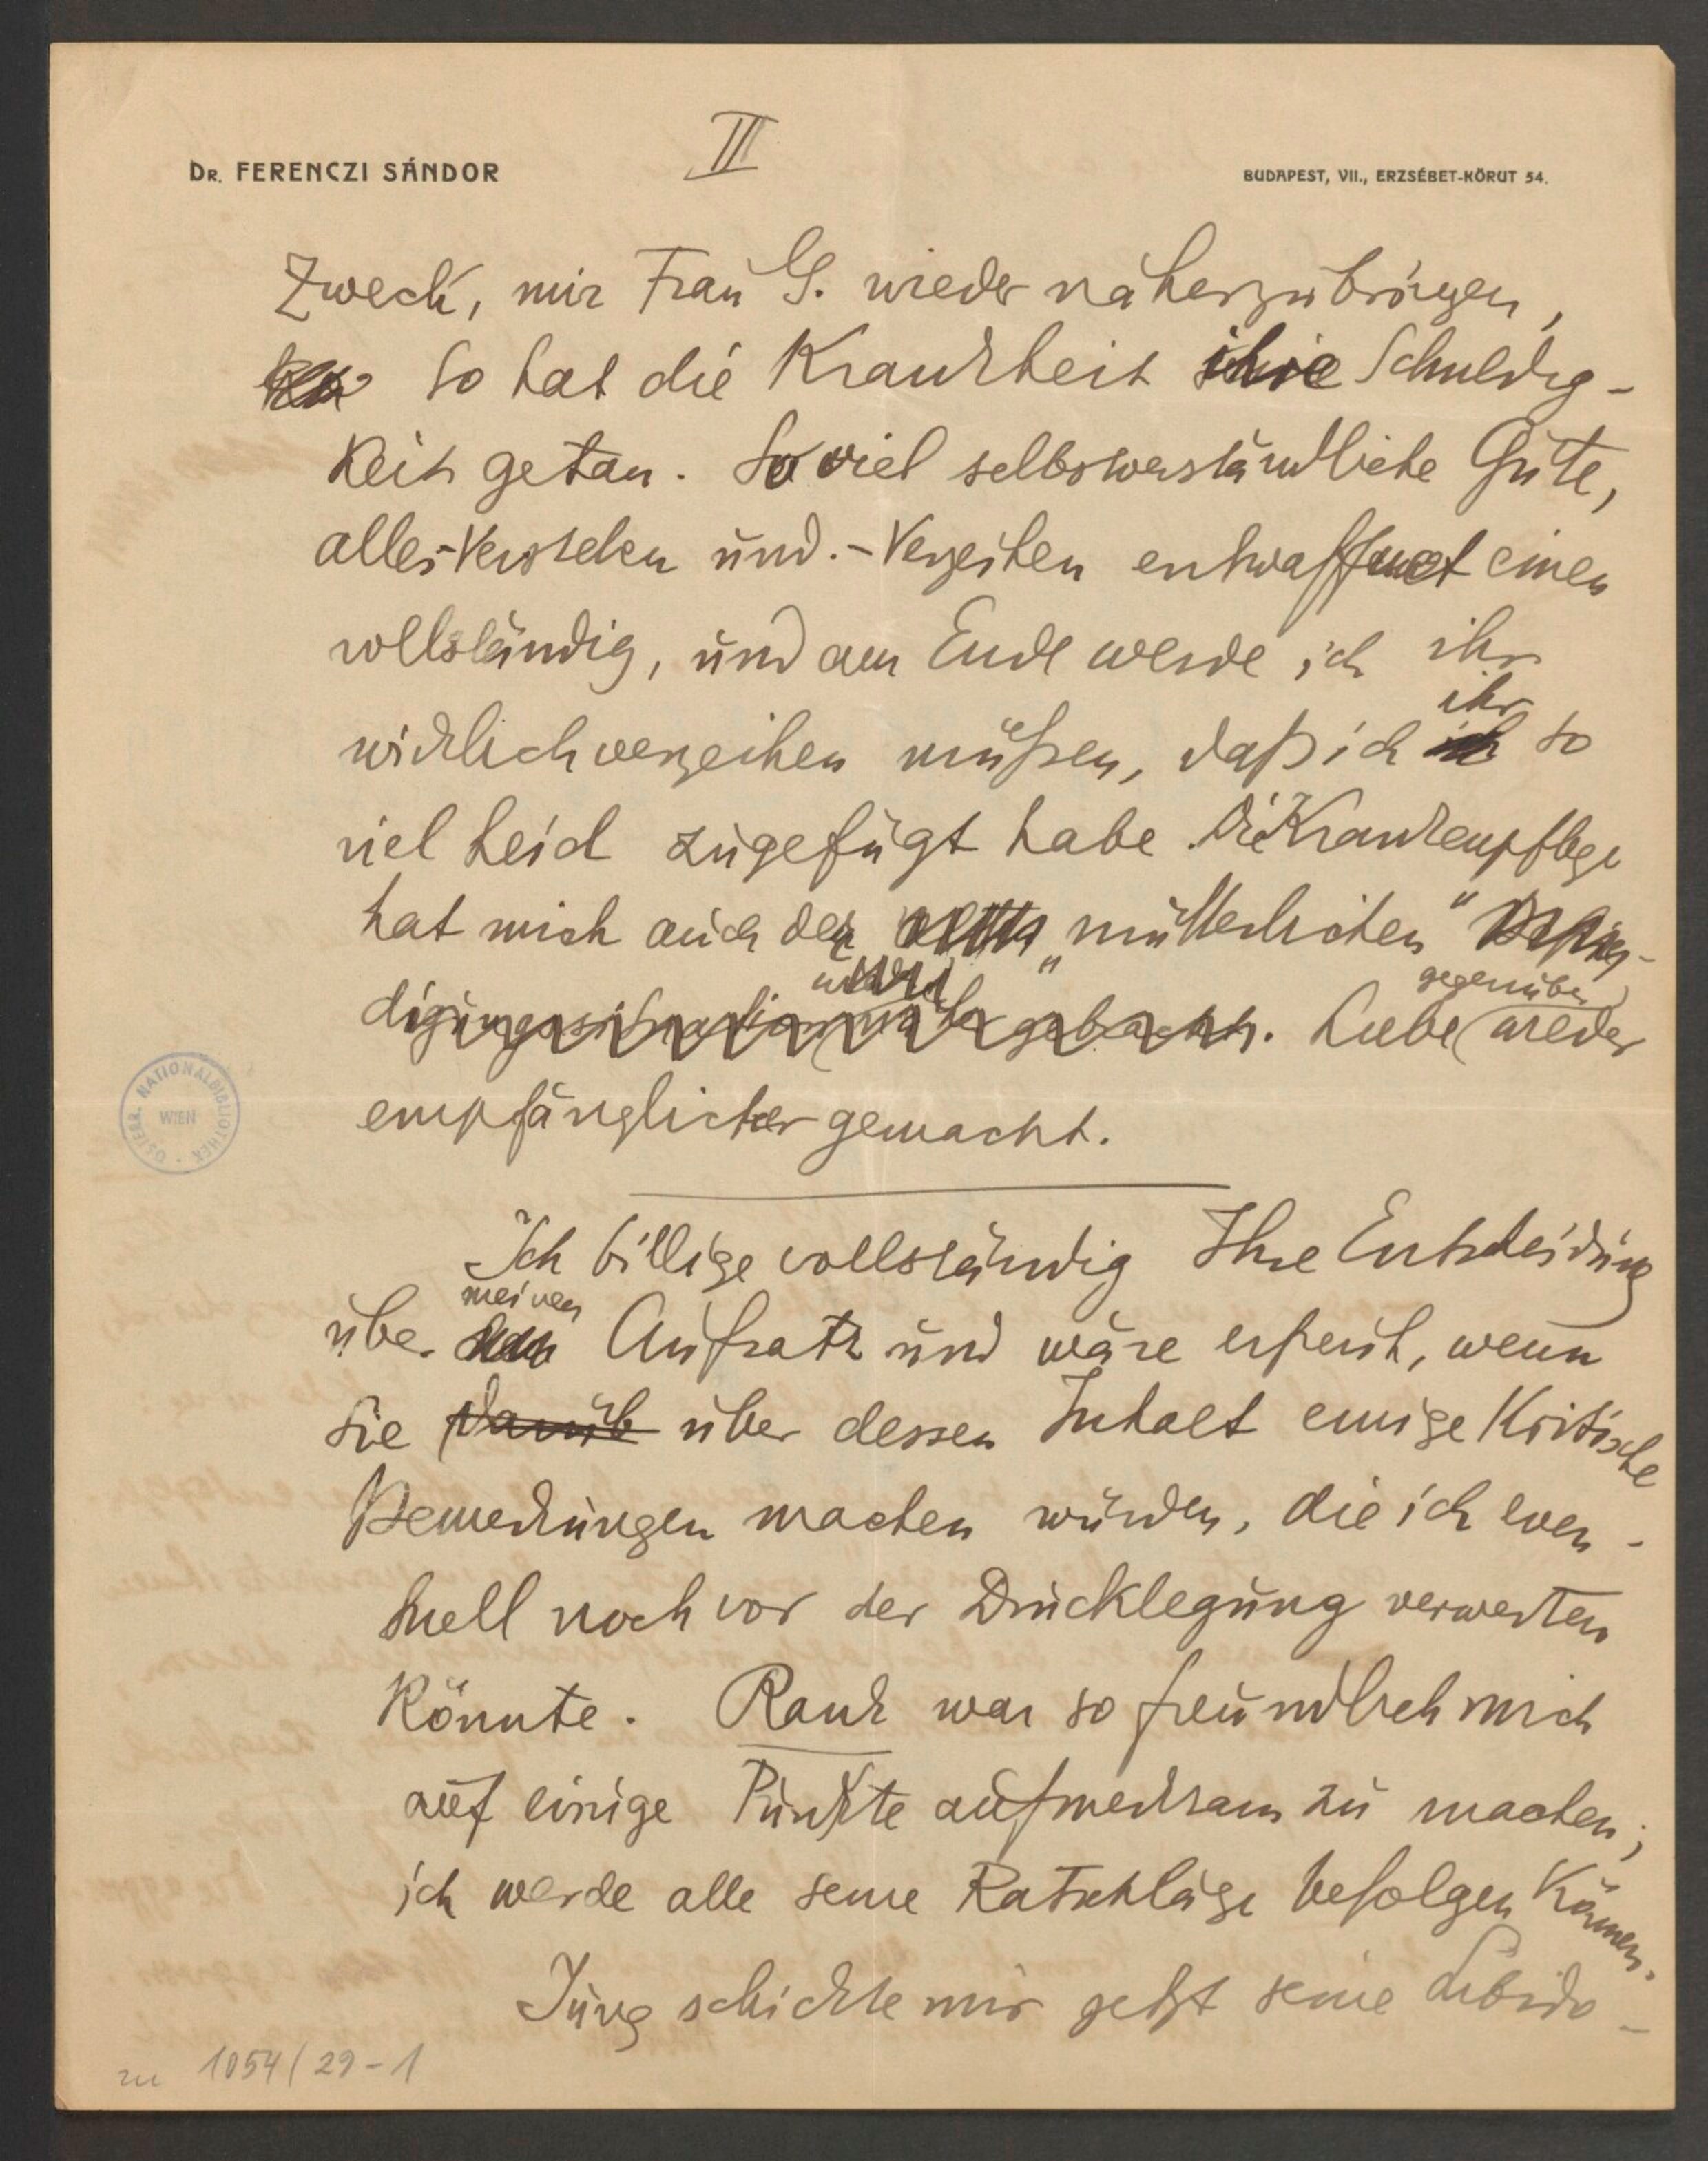 II
DR. FERENCZI SÁNDOR
BUDAPEST, VII., ERZSÉBET-KÖRUT 54.
Zweck, mir Frau G. wieder näherzubringen,
so hat die Krankheit ihre Schuldig-
keit getan. So viel selbstverständliche Güte,
alles-Verstehen und -Verzeihen entwaffnet einen
vollständig, und am Ende werde ich ihr
wirklich verzeihen müßen, daß ich ihr so
viel Leid zugefügt habe. Die Krankenpflege
hat mich auch der „mütterlichen“
digungssituation näher gebracht. Liebe gegenüber wieder
empfänglicher gemacht.
Ich billige vollständig Ihre Entscheidung
über meinen Aufsatz und wäre erfreut, wenn
Sie darüb über dessen Inhalt einige Kritische
Bemerkungen machen würden, die ich even-
tuell noch vor der Drucklegung verwerten
könnte. Rank war so freundlich mich
auf einige Punkte aufmerksam zu machen;
ich werde alle seine Ratschläge befolgen können.
Jung schickte mir jetzt seine Libido-
ÖSTERR. NATIONALBIBLIOTHEK WIEN
zu 1054/29-1